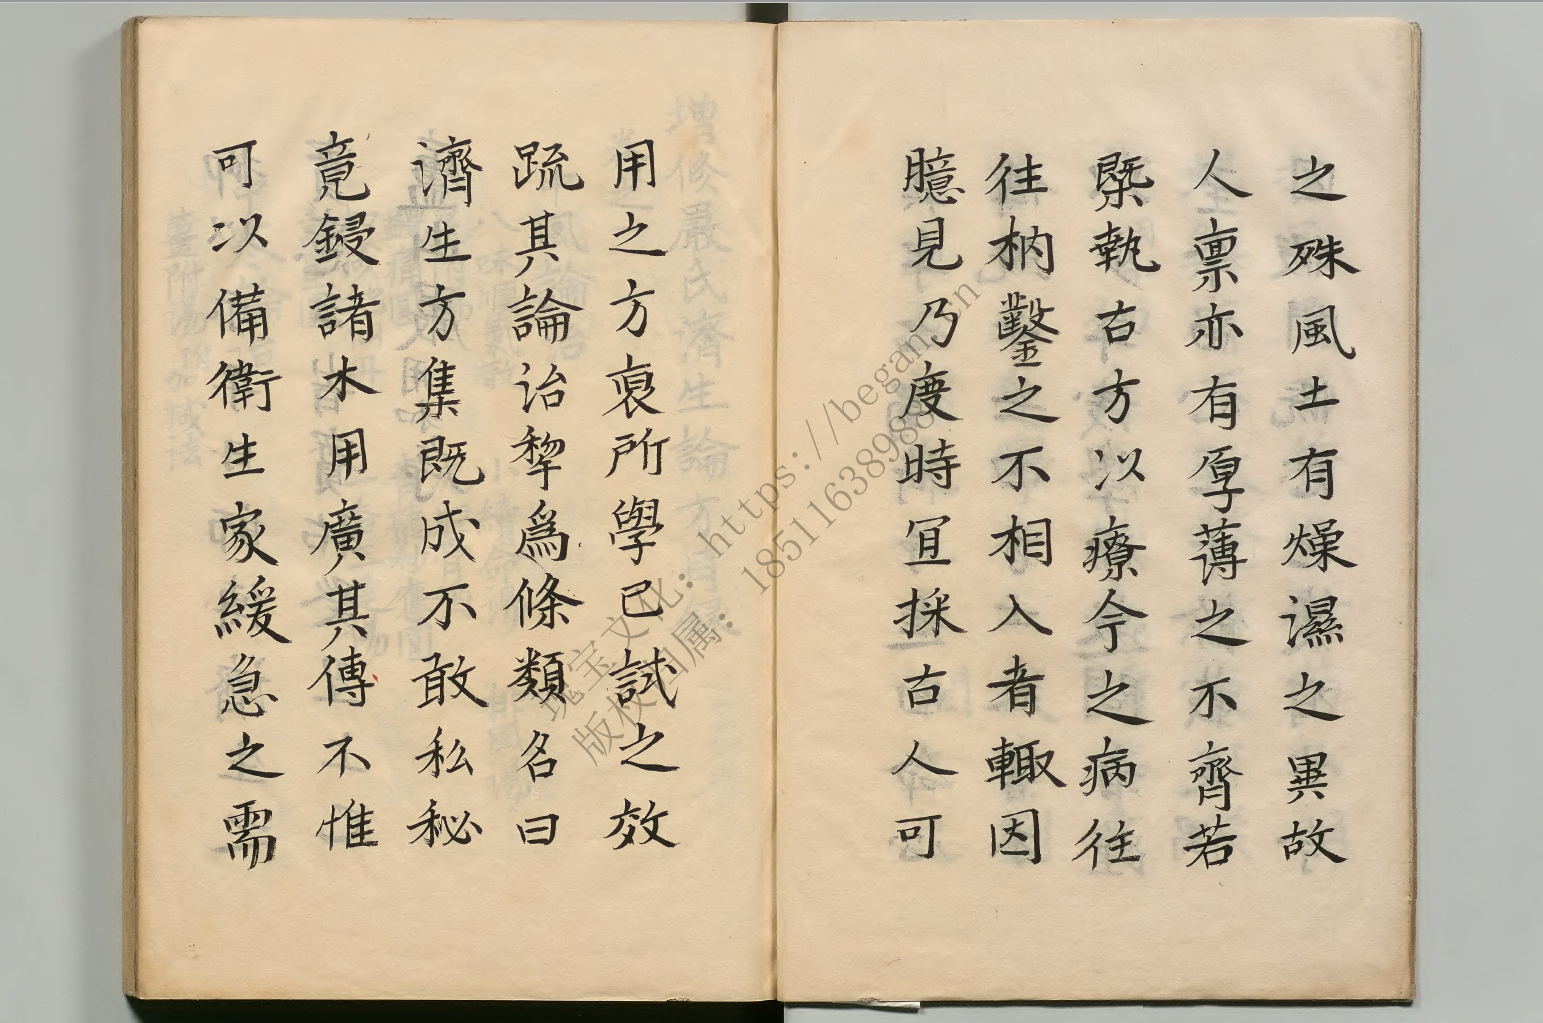 之殊風土有燥濕之異故
人禀亦有厚薄之不齊若
槩執古方以療今之病往
往枘鑿之不相入者輙因
臆見乃度時冝採古人可
用之方裒所學已試之效
䟽其論治犂爲條類名曰
濟生方集既成不敢私秘
竟鋟諸木用廣其傳不惟
可以備衛生家緩急之需
瑰宝文化：https://began.cn
版权归属：18511638988